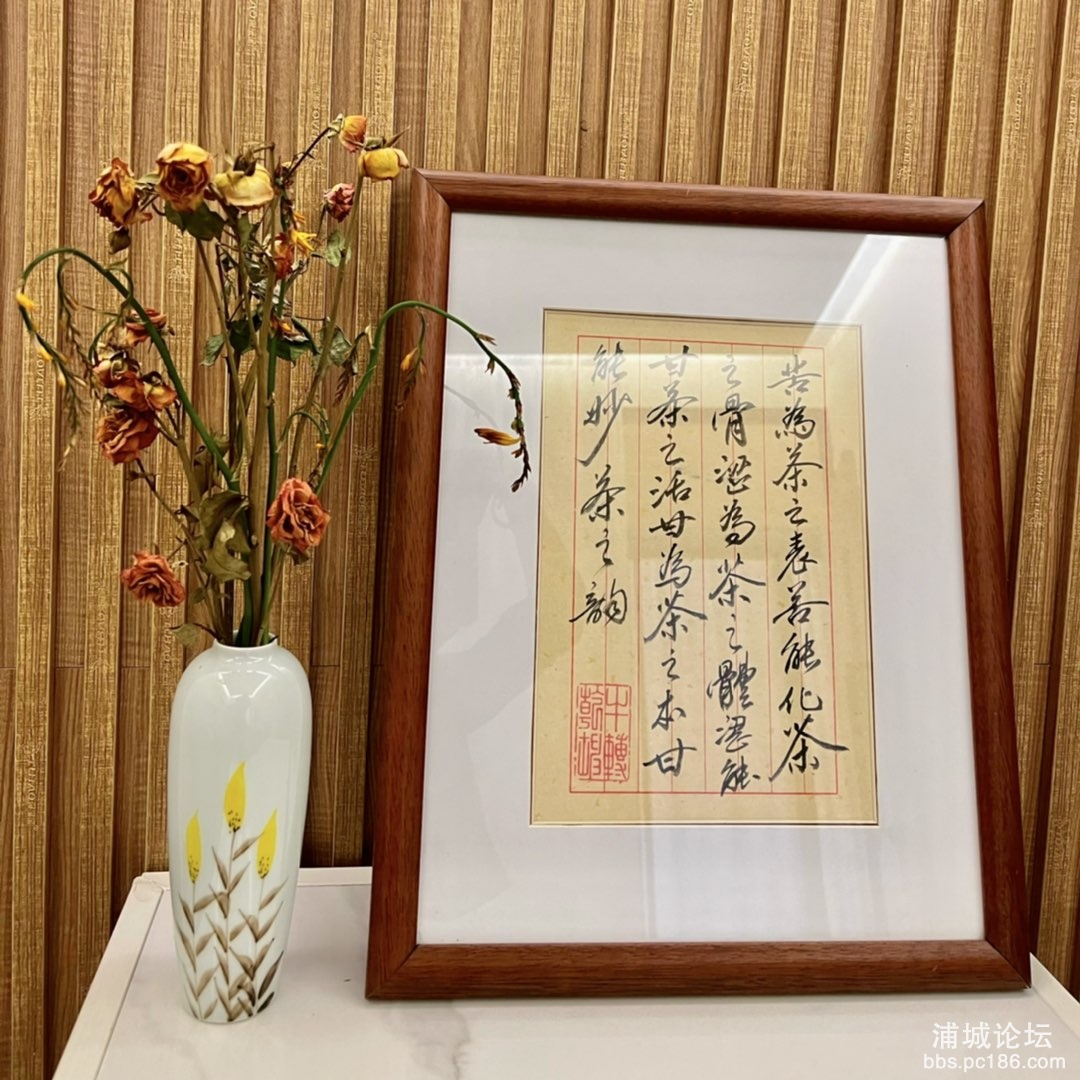 苦為茶之表苦能化茶
之骨澀為茶之體澀能
甘茶之活甘為茶之本甘
能妙茶之韻
牛轉
乾
浦城论坛
bbs.pc186.com